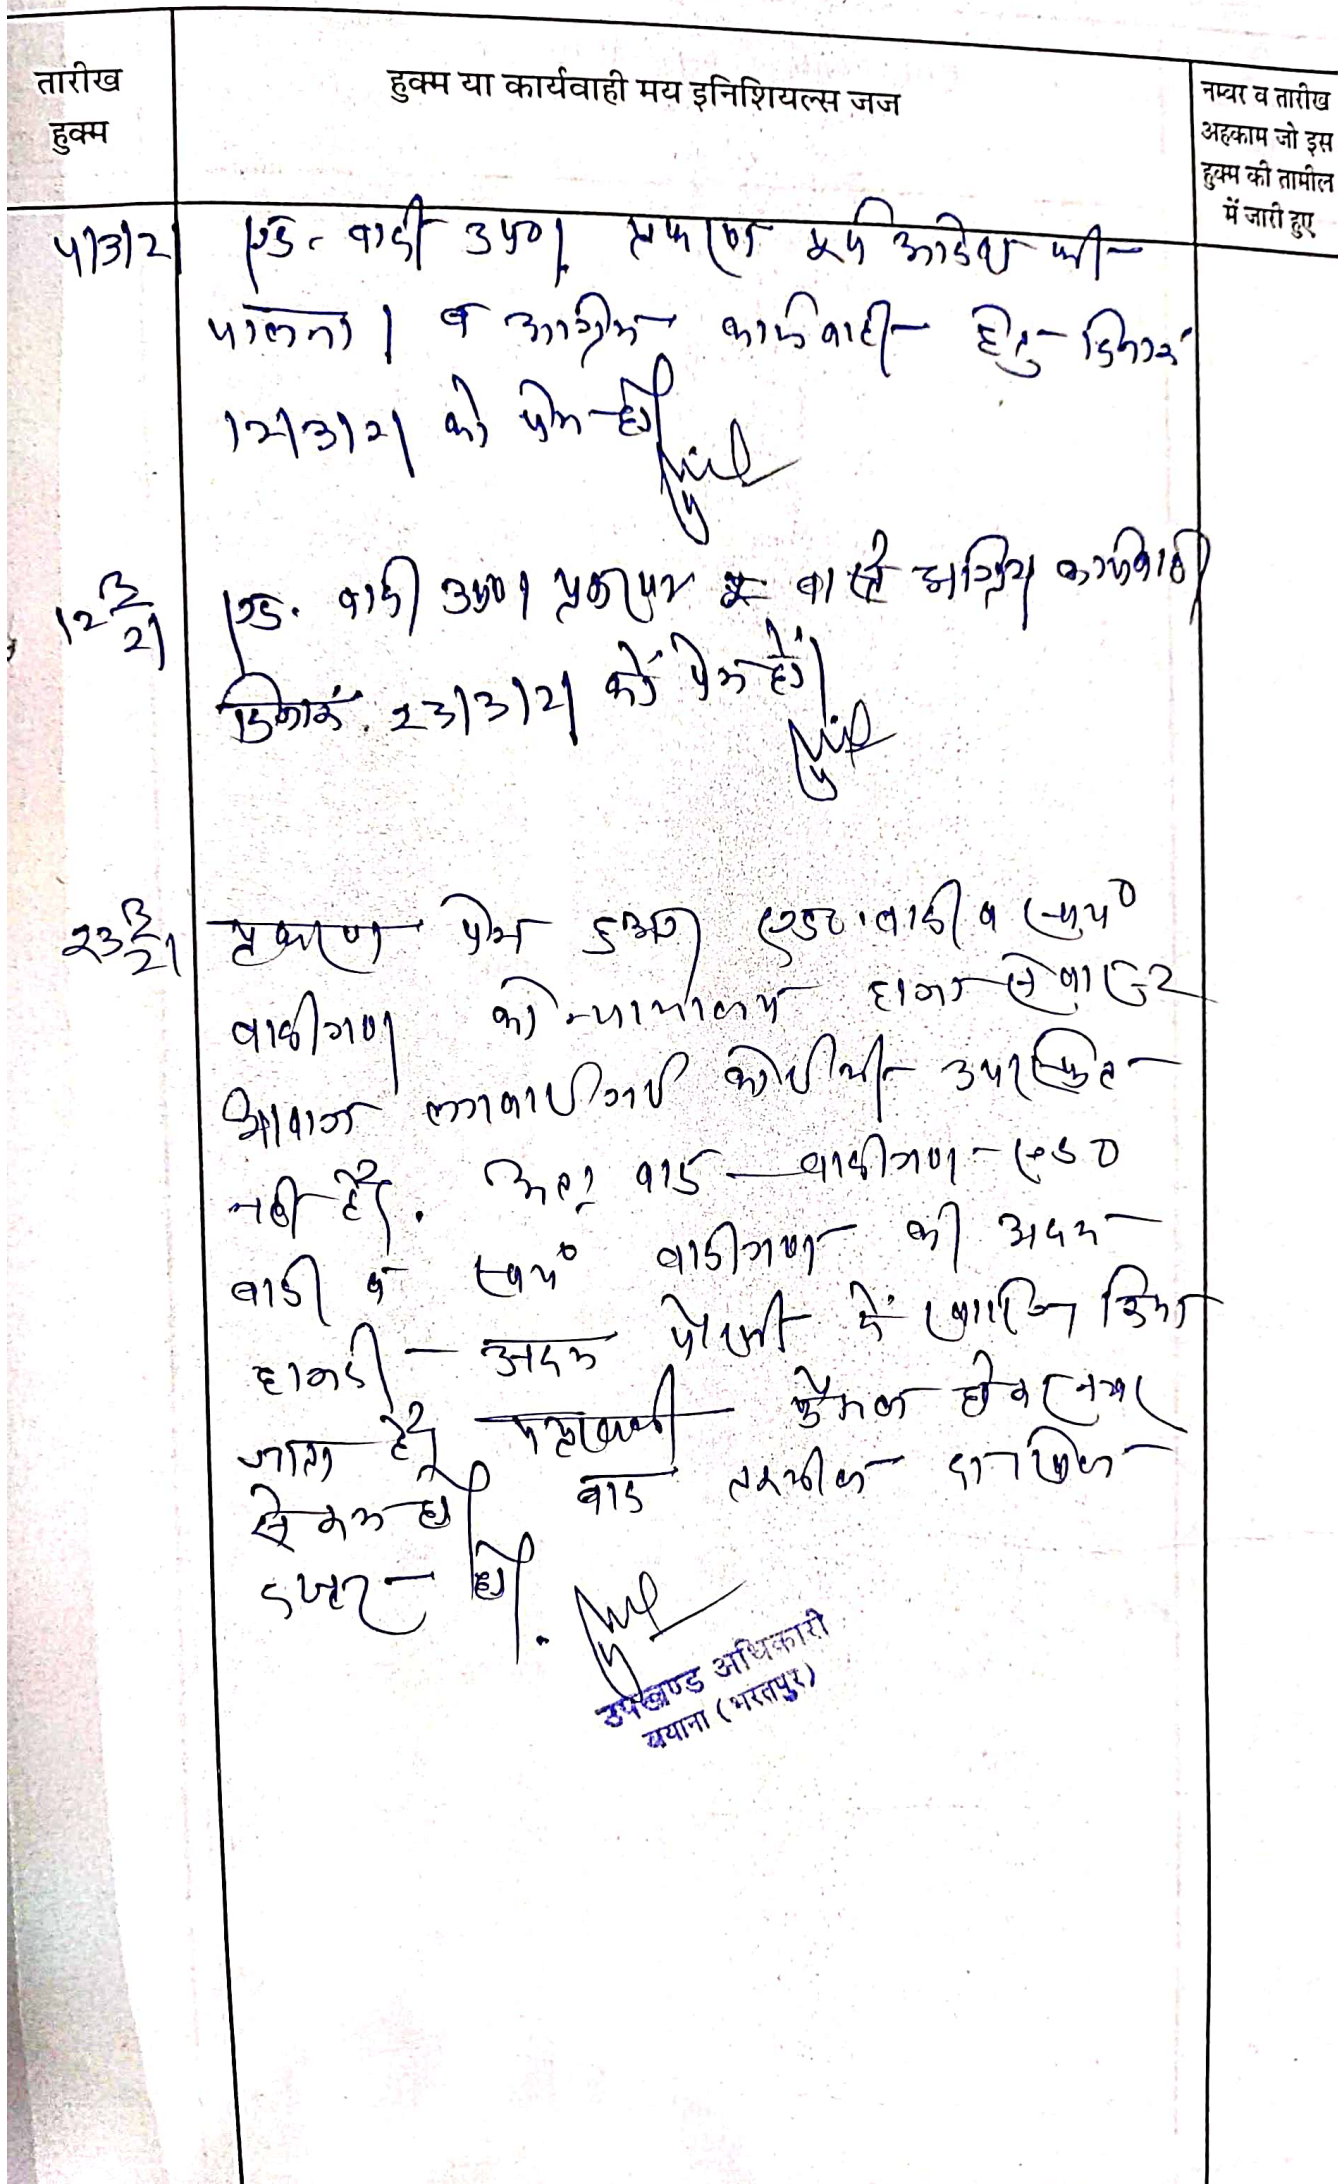 तारीख
हुक्म
हुक्म या कार्यवाही मय इनिशियल्स जज
नम्वर व तारीख
अहकाम जो इस
हुक्म की तामील
में जारी हुए
4/3/21 एड. वादी उप0। प्रकरण पूर्व आदेश की
पालना। व अग्रिम कार्यवाही हेतु दिनांक
12/3/21 को पेश हो।
12/3/21 एड. वादी उप0। प्रकरण वास्ते अग्रिम कार्यवाही
दिनांक. 23/3/21 को पेश हो।
23/3/21 प्रकरण पेश हुआ। एड0 वादी व स्वयं
वादीगण को न्यायालय हाजा से बाहर
आवाज लगवायी गयी कोई भी उपस्थित
नहीं है। अतः वाद वादीगण एड0
वादी व स्वयं वादीगण की अदम
हाजरी अदम पैरवी में खारिज किया
जाता है। पत्रावली फैसल होकर नम्बर
से कम हो। बाद तकमील दाखिल
दफ्तर हो.
उपखण्ड अधिकारी
बयाना (भरतपुर)